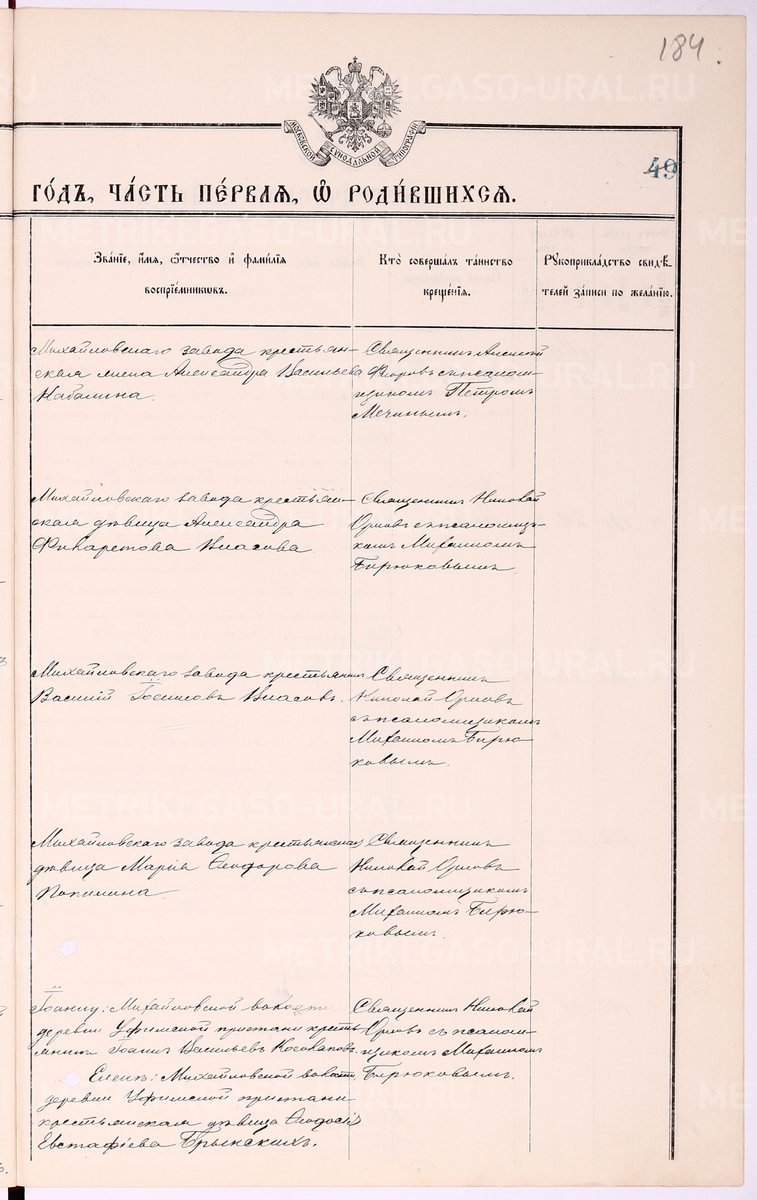 184.
МОСКОВСКОЙ СѴНОДАЛЬНОЙ ТИПОГРАФІИ
49
ГО́ДЪ, ЧА́СТЬ ПЕ́РВАЯ, Ѽ РОДИ́ВШИХСЯ.
Зва́нїе, и҆́мя, ѻ҆́тчество и҆ фами́лїя
воспрїе́мникωвъ.
Кто̀ соверша́лъ та́инство
креще́нїя.
Рꙋкоприкла́дство свидѣ́-
телей за́писи по жела́нїю.
Михайловскаго завода крестьян-
ская жена Александра Васильева
Кабалина.
Священникъ Алексѣй
Флоровъ съ псалом-
щикомъ Петромъ
Мечинымъ.
Михайловскаго завода крестьян-
ская дѣвица Александра
Филаретова Власова
Священникъ Николай
Орловъ съ псаломщи-
комъ Михаиломъ
Бирюковымъ.
Михайловскаго завода крестьянинъ
Василій Іосифовъ Власовъ.
Священникъ
Николай Орловъ
съ псаломщикомъ
Михаиломъ Бирю-
ковымъ.
Михайловскаго завода крестьянская
дѣвица Марія Ѳеодорова
Священникъ
Николай Орловъ
съ псаломщикомъ
Михаиломъ Бирю-
ковымъ.
Іоанну: Михайловской волости,
деревни Уфимской пристани кресть-
янинъ Іоаннъ Васильевъ Косолаповъ.
Еленѣ: Михайловской волости,
деревни Уфимской пристани
крестьянская дѣвица Ѳеодосія
Евстафіева Брынскихъ.
Священникъ Николай
Орловъ съ псалом-
щикомъ Михаиломъ
Бирюковымъ.
METRIKI.GASO-URAL.RU